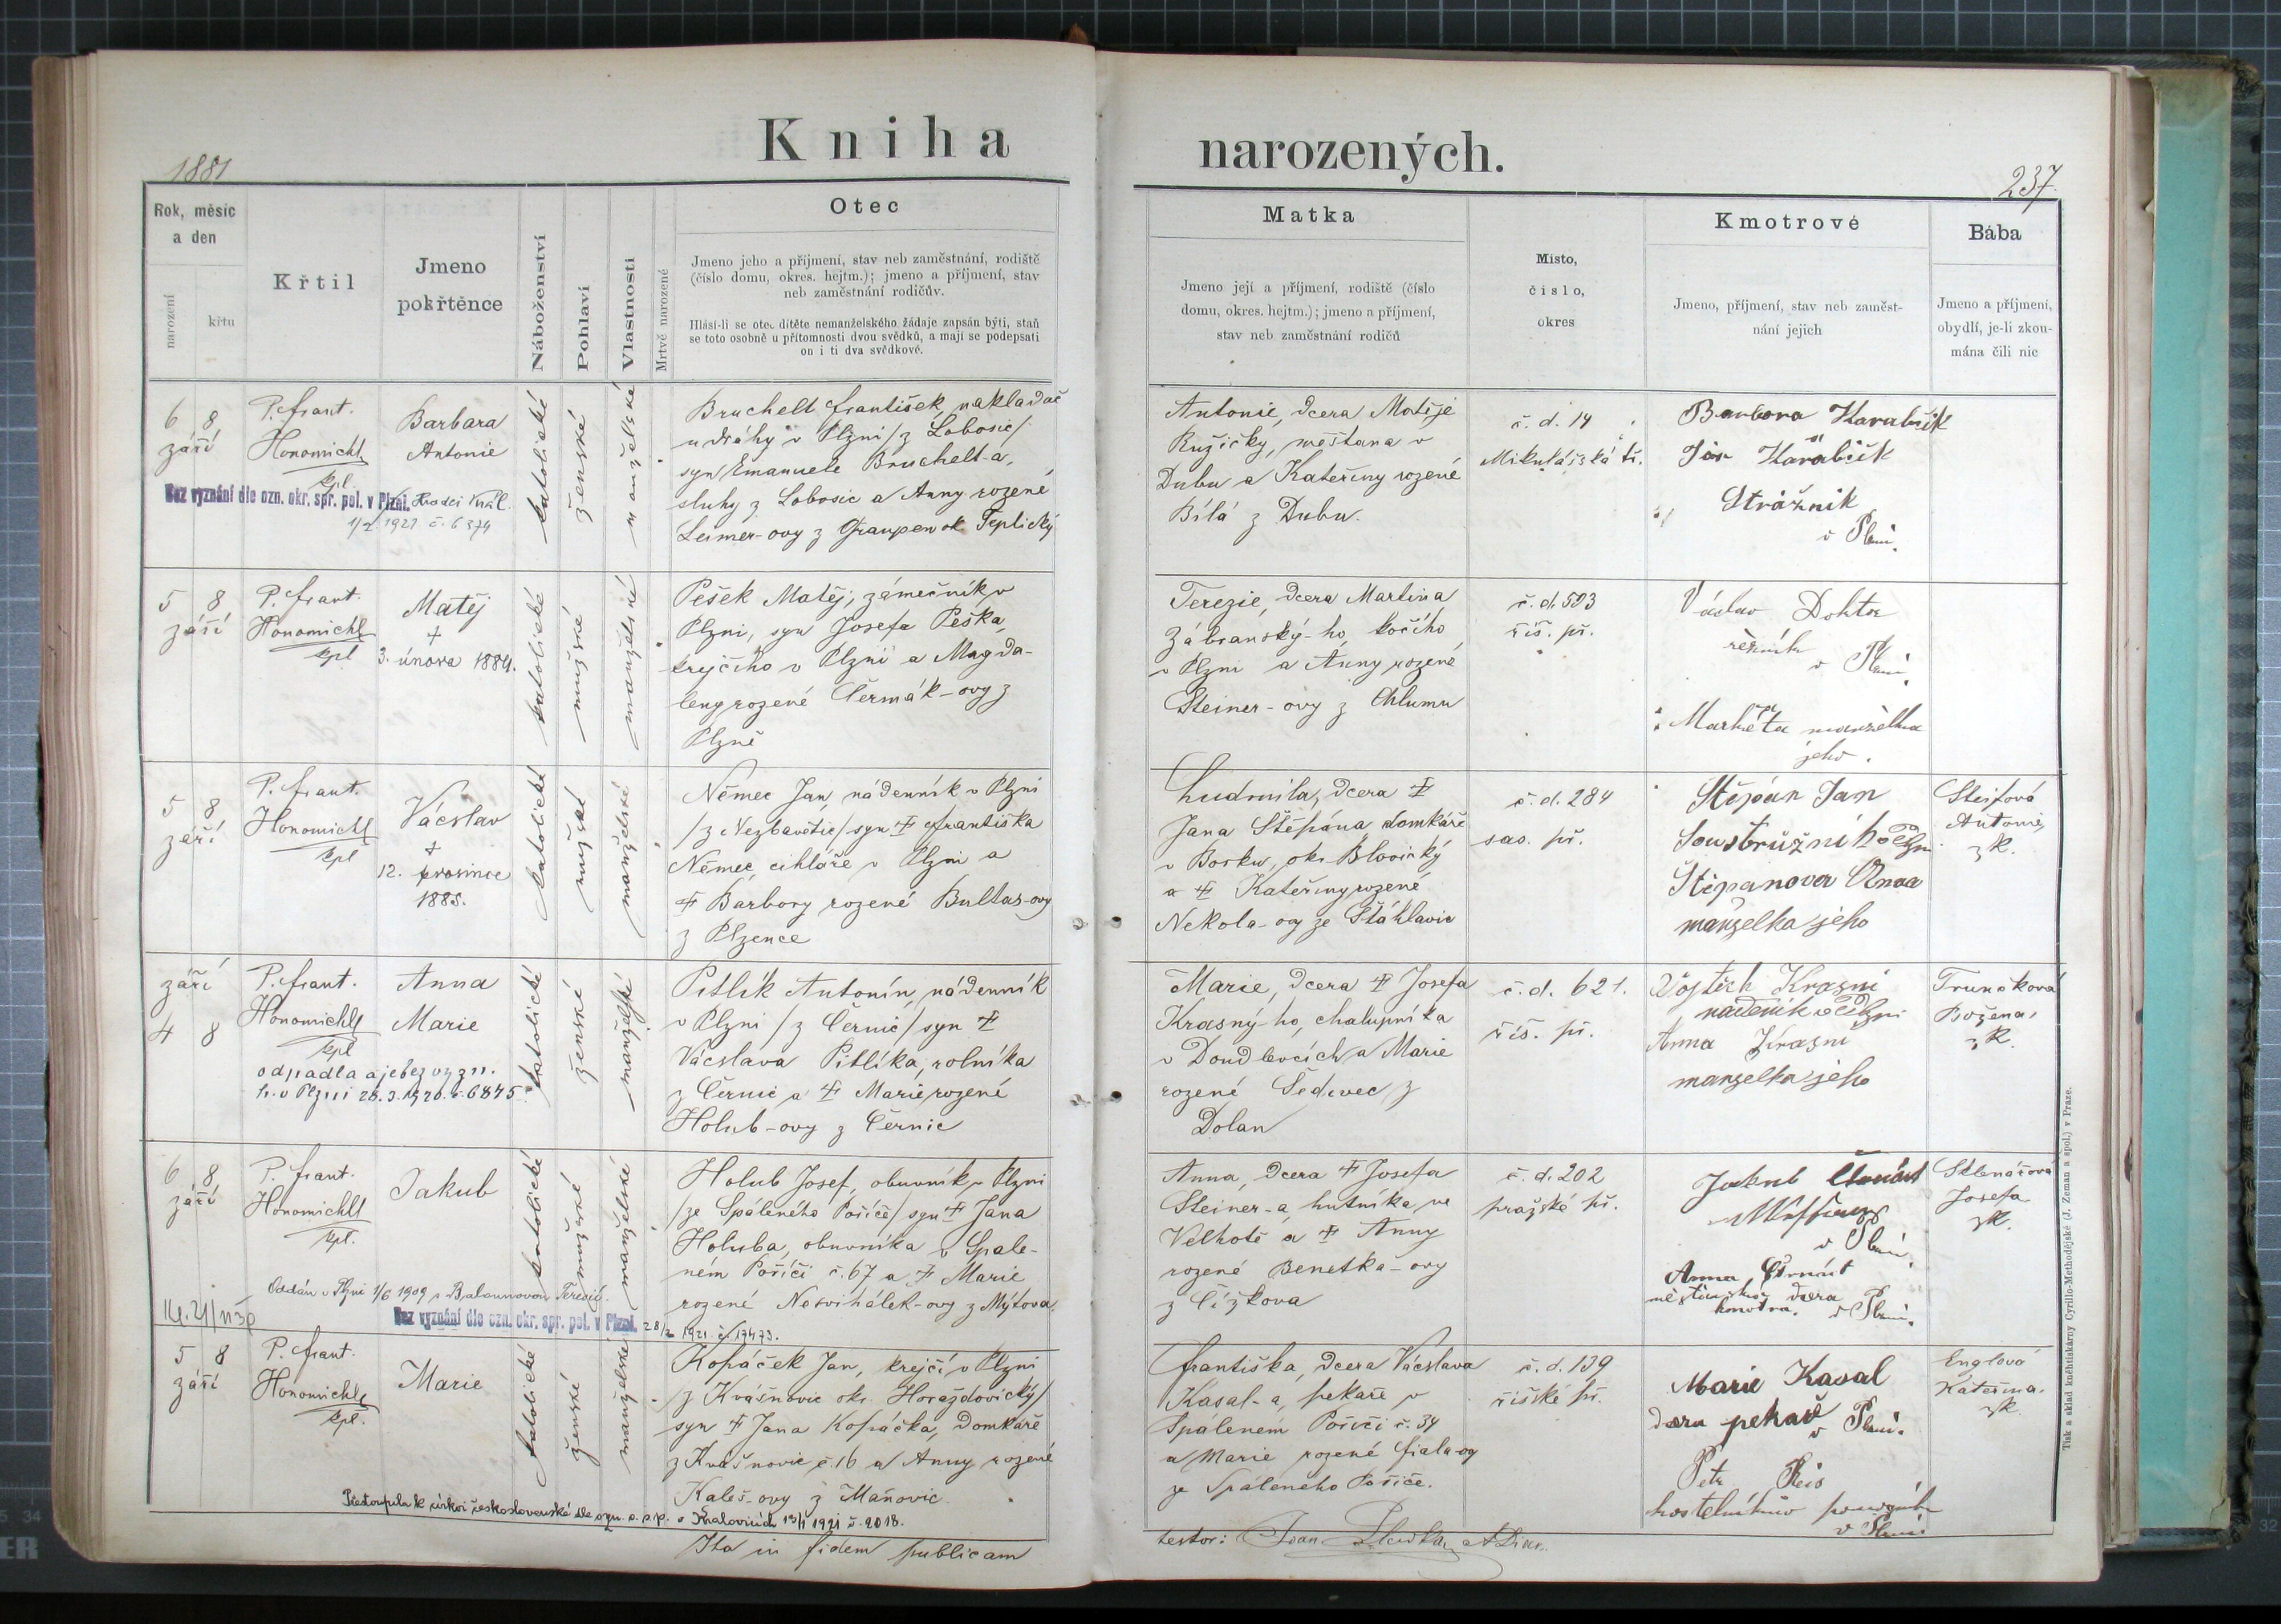 Kniha narozených.
1881
237.
Rok, měsíc
a den
narození
křtu
Křtil
Jmeno
pokřtěnce
Náboženství
Pohlaví
Vlastnosti
Mrtvě narozené
Otec
Jmeno jeho a příjmení, stav neb zaměstnání, rodiště
(číslo domu, okres. hejtm.); jmeno a příjmení, stav
neb zaměstnání rodičův.
Hlásí-li se otec dítěte nemanželského žádaje zapsán býti, staň
se toto osobně u přítomnosti dvou svědků, a mají se podepsati
on i ti dva svědkové.
Matka
Jmeno její a příjmení, rodiště (číslo
domu, okres. hejtm.); jmeno a příjmení,
stav neb zaměstnání rodičů
Místo,
číslo,
okres
Kmotrové
Jmeno, příjmení, stav neb zaměst-
nání jejich
Bába
Jmeno a příjmení,
obydlí, je-li zkou-
mána čili nic
6 8
září
P. Frant.
Honomichl
kpl.
Barbara
Antonie
katolické
ženské
manželské
Bruchelt František, nakladač
u dráhy v Plzni /z Lobosic/
syn Emanuele Bruchelt-a,
sluhy z Lobosic a Anny rozené
Leimer-ovy z Graupen ok. Teplický
Bez vyznání dle ozn. okr. spr. pol. v Plzni. Hradci Král.
1921 č. 6374
Antonie, dcera Matěje
Ružičky, měštana v
Dubu a Kateřiny rozené
Bílá z Dubu.
č. d. 14
Mikulášská tř.
Barbora Karabčik
Karabčik
Strážnik
v Plzni.
5 8
září
P. Frant.
Honomichl
kpl
Matěj
+
3. února 1884.
katolické
mužské
manželské
Pešek Matěj, zámečník v
Plzni, syn Josefa Peška,
krejčího v Plzni a Magda-
leny rozené Čermák-ovy z
Plzně
Terezie, dcera Martina
Zábranský-ho, kočího
v Plzni a Anny rozené
Steiner-ovy z Chlumu
č. d. 503
říš. př.
Václav Doktor
řezník
v Plzni.
Markéta manželka
jeho.
5 8
září
P. Frant.
Honomichl
kpl
Vácslav
+
12. prosince
1885.
katolické
mužské
manželské
Němec Jan, nádenník v Plzni
/z Nezbavětic/ syn ✝ Františka
Němec, cihláře v Plzni a
✝ Barbory rozené Bultas-ovy
z Plzence
Ludmila, dcera ✝
Jana Štěpána, domkáře
v Borku, okr. Blovický
a ✝ Kateřiny rozené
Nekola-ovy ze Šťáhlavic
č. d. 284
sas. př.
Štěpán Jan
Soustružník v Plzni
Štěpanova Anna
manželka jeho
Steifová
Antonie,
zk.
září
4 8
P. Frant.
Honomichl
kpl
Anna
Marie
katolické
ženské
manželské
Pitlík Antonín, nádenník
v Plzni /z Černic/ syn ✝
Vácslava Pitlíka, rolníka
z Černic a ✝ Marie rozené
Holub-ovy z Černic
odpadla a je bez vyzn.
h. v Plzni 26.3.1920. č. 6875.
Marie, dcera ✝ Josefa
Krasný-ho, chalupníka
v Doudlevcích a Marie
rozené Šedivec z
Dolan
č. d. 621.
říš. př.
Vojtěch Krasni
nádeník v Plzni
Anna Krasni
manzelka jeho
Trunečková
Božena,
zk.
6 8
září
P. Frant.
Honomichl
kpl.
Jakub
katolické
mužské
manželské
Holub Josef, obuvník v Plzni
/ze Spáleného Poříčí/ syn ✝ Jana
Holuba, obuvníka v Spále-
ném Poříčí č. 67 a ✝ Marie
rozené Nesvihálek-ovy z Mýtova.
Oddán v Plzni 1/6 1909 s Balounovou Terezií.
Bez vyznání dle ozn. okr. spr. pol. v Plzni. 28/2 1921. č. 17473.
Anna, dcera ✝ Josefa
Steiner-a, hutníka, ve
Velhotě a ✝ Anny
rozené Benetka-ovy
z Čížkova
č. d. 202
pražské př.
Jakub
v Plzni
Anna
dcera
kmotra. v Plzni.
Sklenářová
Josefa
zk.
5 8
září
P. Frant.
Honomichl
kpl.
Marie
katolické
ženské
manželské
Kopáček Jan, krejčí v Plzni
/z Kvášňovic okr. Horažďovický/
syn ✝ Jana Kopáčka, domkáře
z Kvašňovic č. 16 a Anny rozené
Kaleš-ovy z Maňovic.
Přestoupila k církvi československé dle ozn. o. s. p. v Kralovicích 13/1 1921 č. 2018.
Františka, dcera Vácslava
Kasal-a, pekaře v
Spáleném Poříčí č. 34
a Marie rozené Fiala-ovy
ze Spáleného Poříčí.
č. d. 139
říšské př.
Marie Kasal
dcera pekaře v Plzni.
Petr
v Plzni
Englová
Kateřina.
zk.
Ita in fidem publicam
testor: Joan
Tisk a sklad knihtiskárny Cyrillo-Methodějské (J. Zeman a spol.) v Praze.